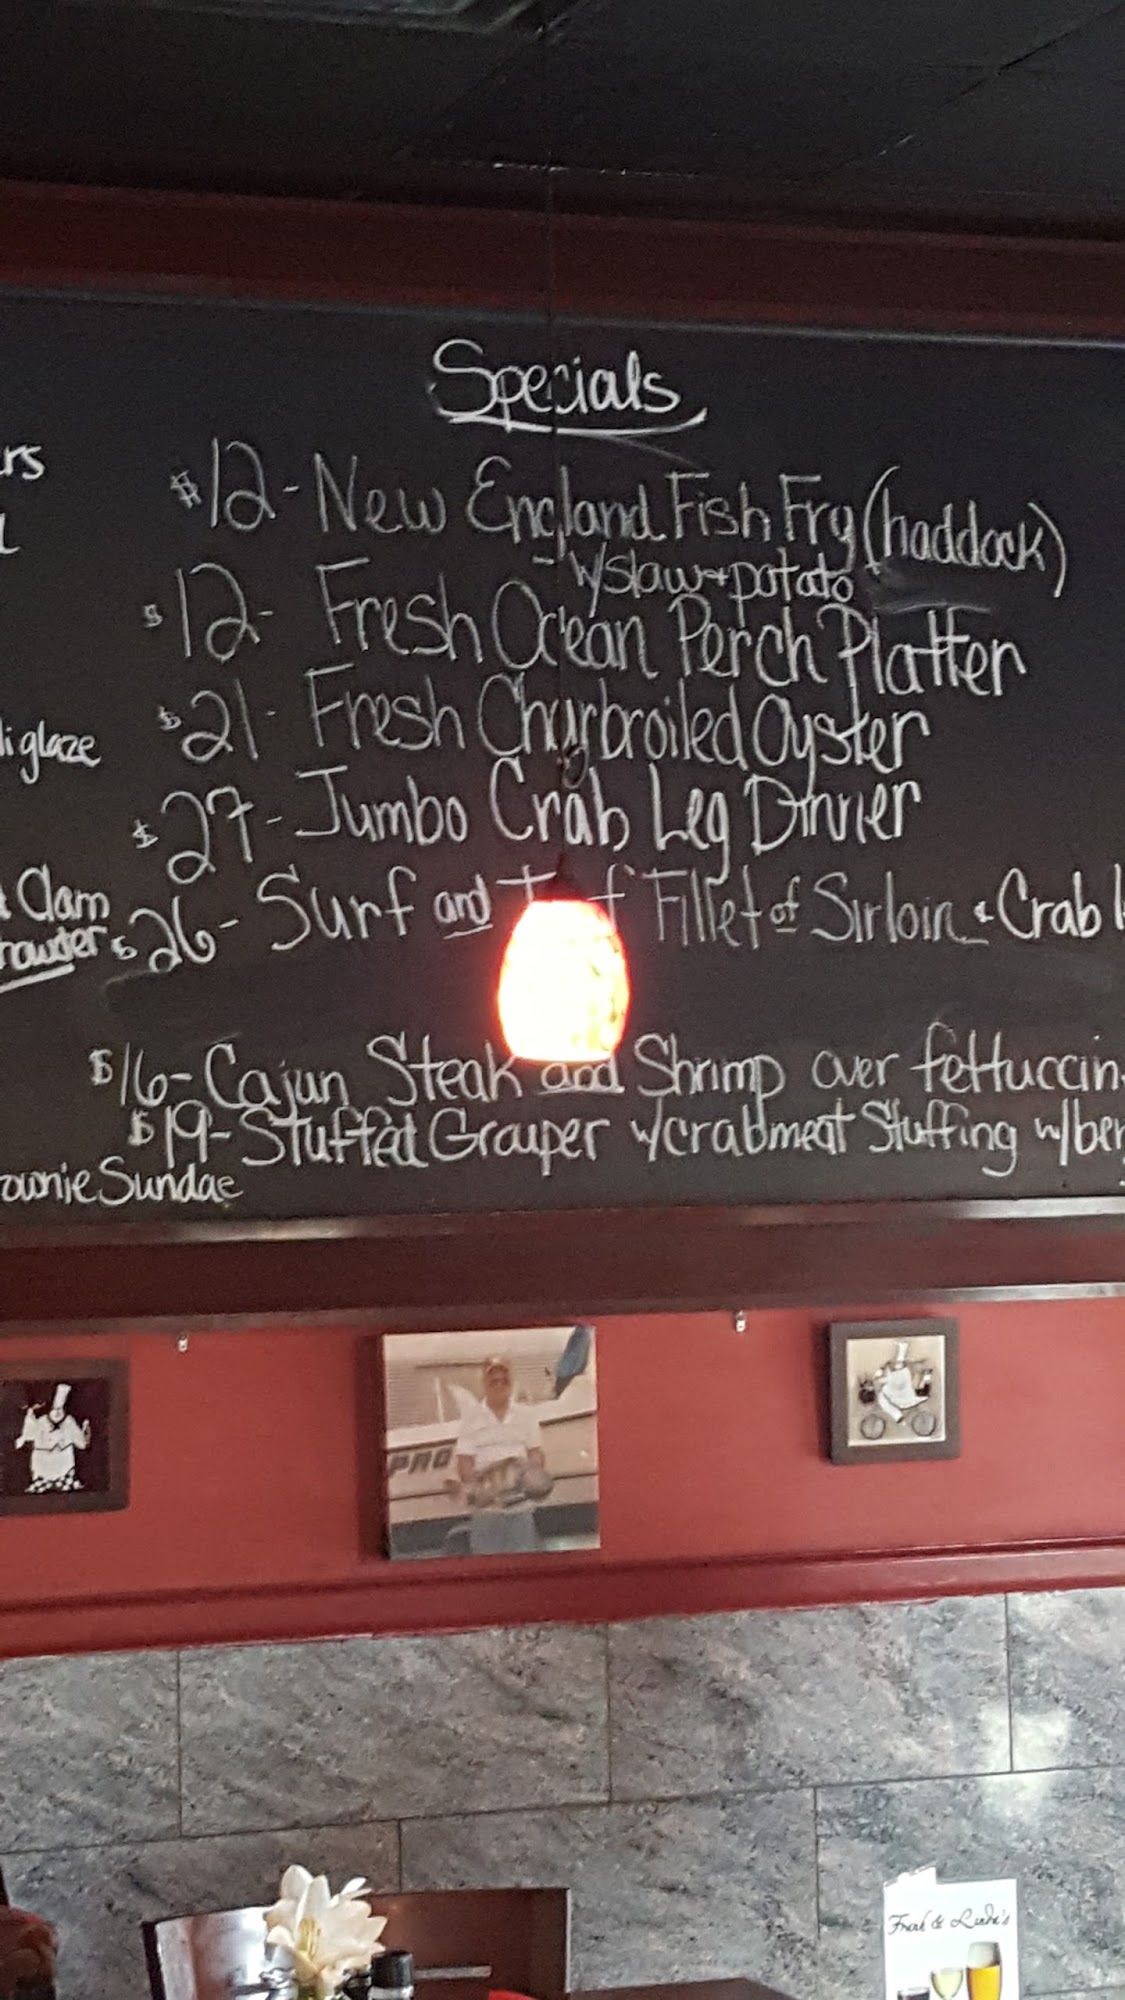 Specials
$12- New England Fish Fry (haddock)
- w/slaw + potato
$12- Fresh Ocean Perch Platter
$21- Fresh Charbroiled Oyster
$27- Jumbo Crab Leg Dinner
$26- Surf and Fillet of Sirloin & Crab
$16- Cajun Steak and Shrimp over fettuccin
$19- Stuffed Grouper w/crabmeat Stuffing w/ber
rs
li glaze
Clam
howder
ownie Sundae
PRO
Frank & Linda's